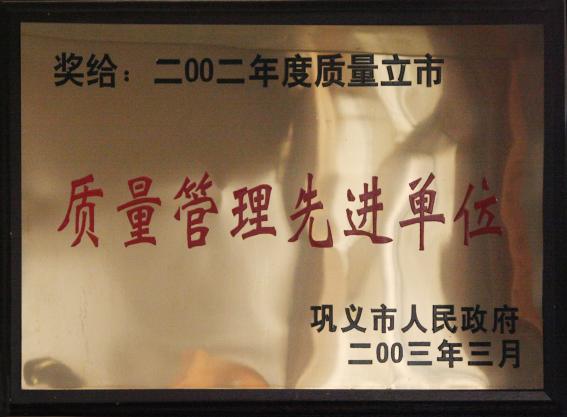 奖给：二00二年度质量立市
质量管理先进单位
巩义市人民政府
二00三年三月